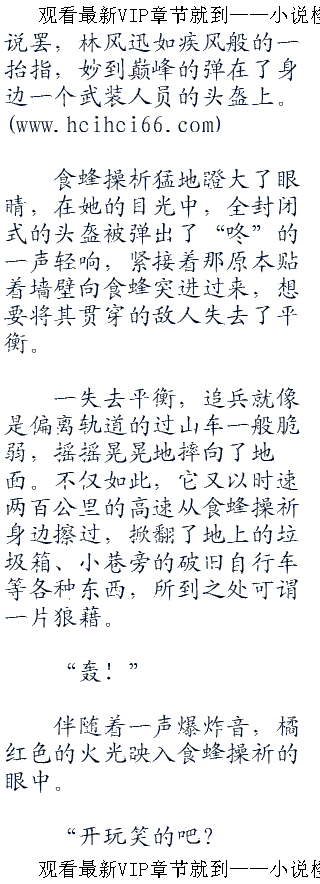 观看最新VIP章节就到——小说检
说罢，林风迅如疾风般的一
抬指，妙到巅峰的弹在了身
边一个武装人员的头盔上。
(www.hcihci66.com)
食蜂操析猛地瞪大了眼
睛，在她的目光中，全封闭
式的头盔被弹出了“咚”的
一声轻响，紧接着那原本贴
着墙壁向食蜂突进过来，想
要将其贯穿的敌人失去了平
衡。
一失去平衡，追兵就像
是偏离轨道的过山车一般脆
弱，摇摇晃晃地摔向了地
面。不仅如此，它又以时速
两百公里的高速从食蜂操祈
身边擦过，掀翻了地上的垃
圾箱、小巷旁的破旧自行车
等各种东西，所到之处可谓
一片狼藉。
“轰！”
伴随着一声爆炸音，橘
红色的火光映入食蜂操祈的
眼中。
“开玩笑的吧？
观看最新VIP章节就到——小说检